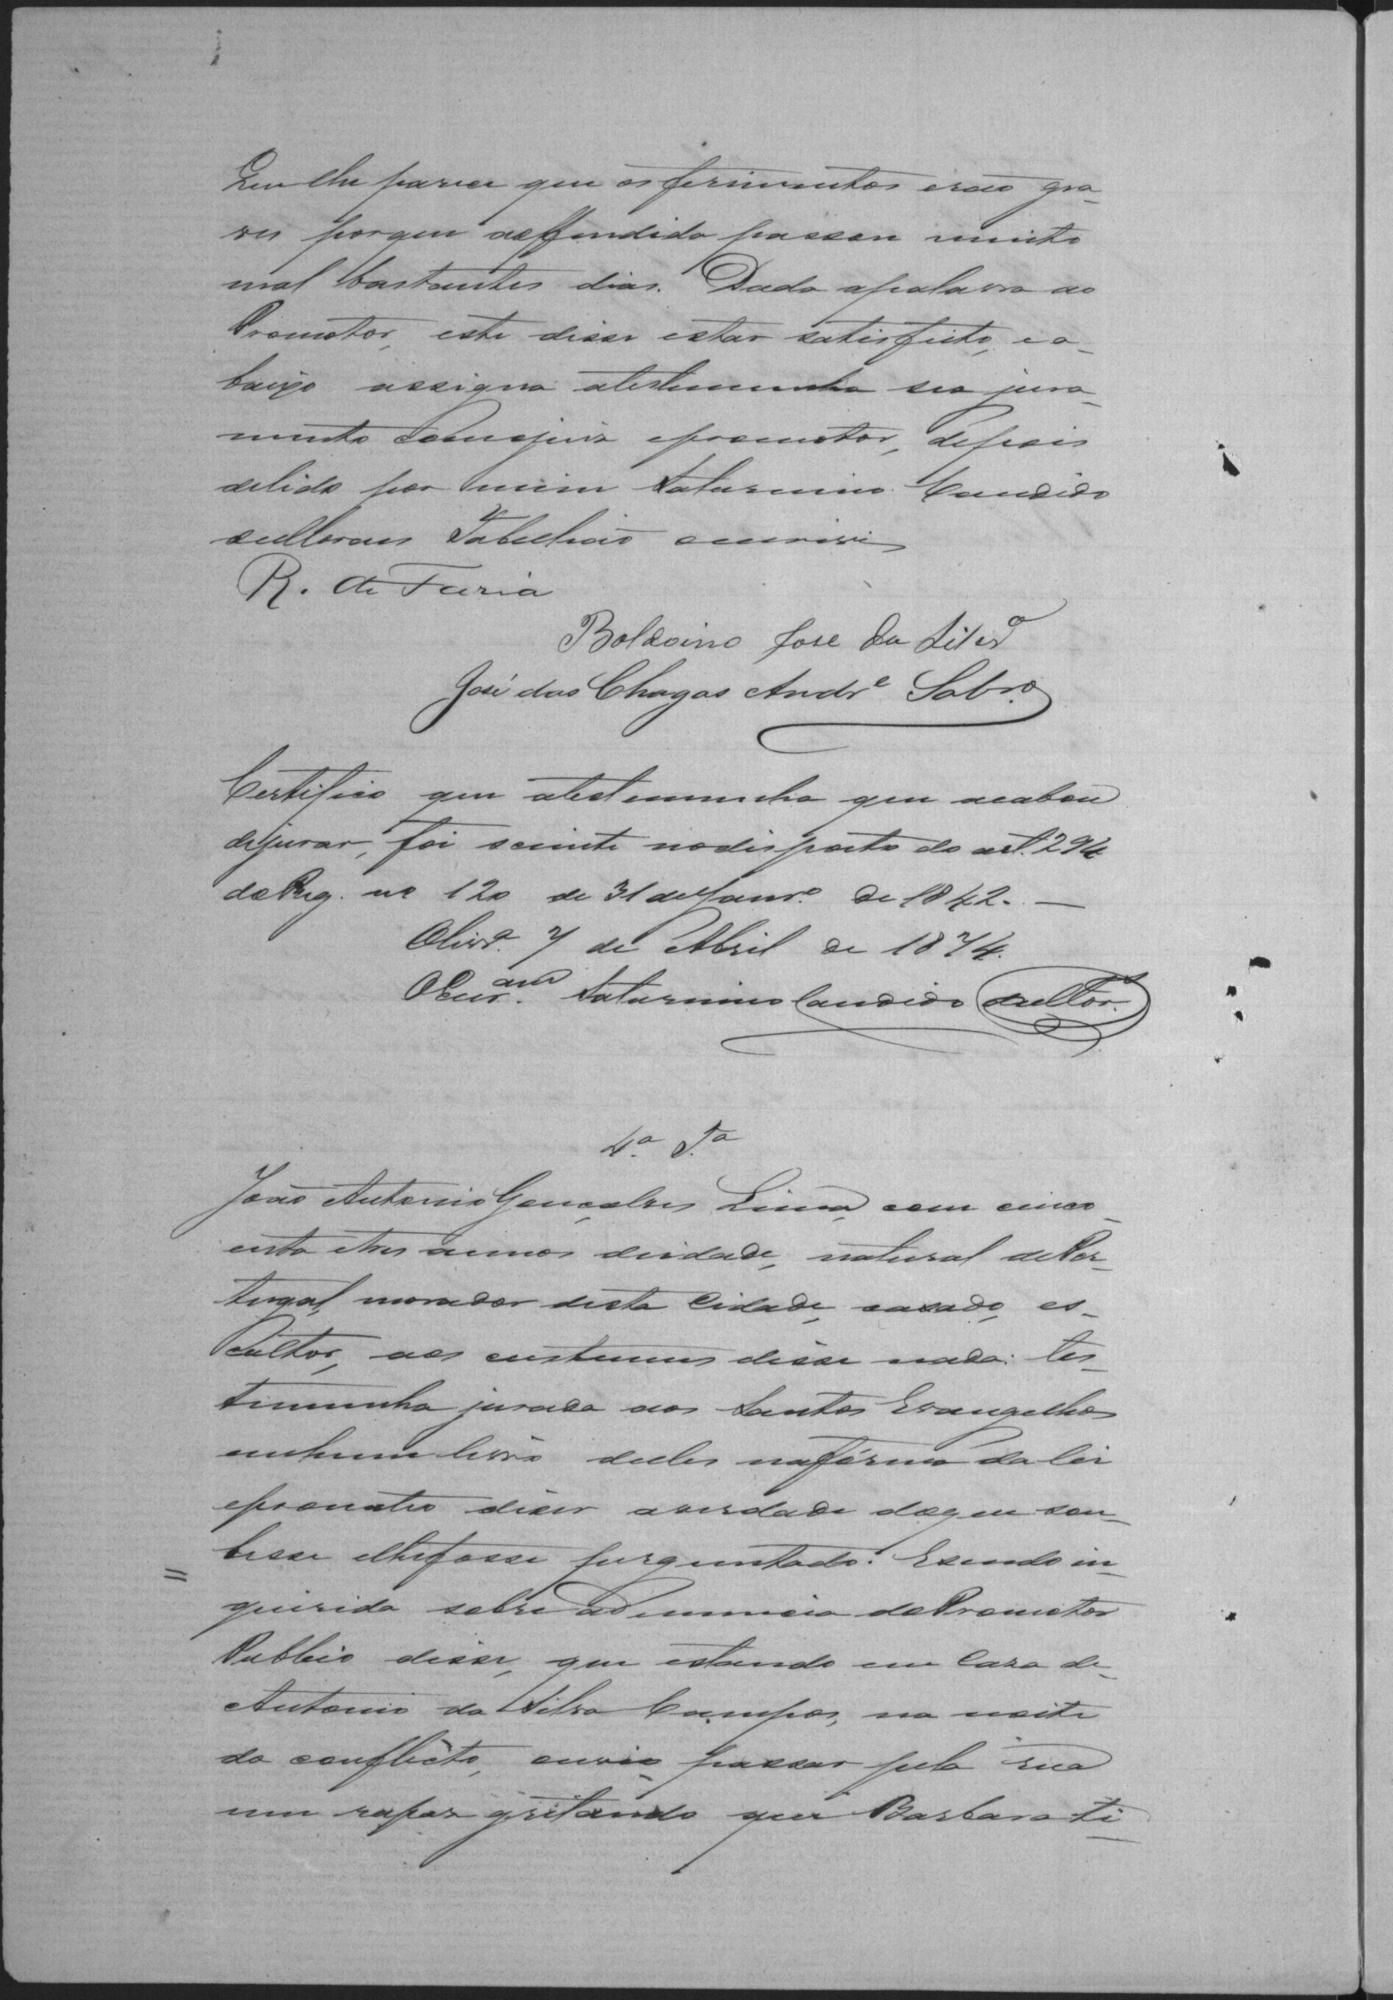 Que lhe parece que os ferimentos erão gra-
ves porque oofendido passou muito
mal bastantes dias. Dada apalavra ao
Promotor, este disse estar satisfeito, e a-
baixo assigna atestemunha seo jura-
mento com ojuis epromotor, depois
delido por mim Saturnino Candido
Tabellião escrivi
R. de Faria
Boldoino Jose da Silvª
José das Chagas Andrᵉ Sobrº
Certifico que atestemunha que acabou
dejurar, foi sciente nodisposto do art. 294
do Reg. nº 120 de 31 deJanrº de 1842. —
Olivrª 7 de Abril de 1874.
OEscram Saturnino Candido
4.ª T.ª
João Antonio Gonçalves Lima, com cinco-
enta etres annos deidade, natural dePor-
tugal, morador desta Cidade, casado, es-
cultor, aos custumes disse nada. Tes-
timunha jurada aos Santos Evangelhos
emhum livro delles naforma da lei
eprometeo diser averdade doque sou-
besse elhefosse perguntado. Esendo in-
querida sobre aDenuncia doPromotor
Publico disse, que estando em Casa de
Antonio da Silva Campos, na noite
do conflicto, ouvio passar pela rua
um rapaz gritando que Barbara ti-